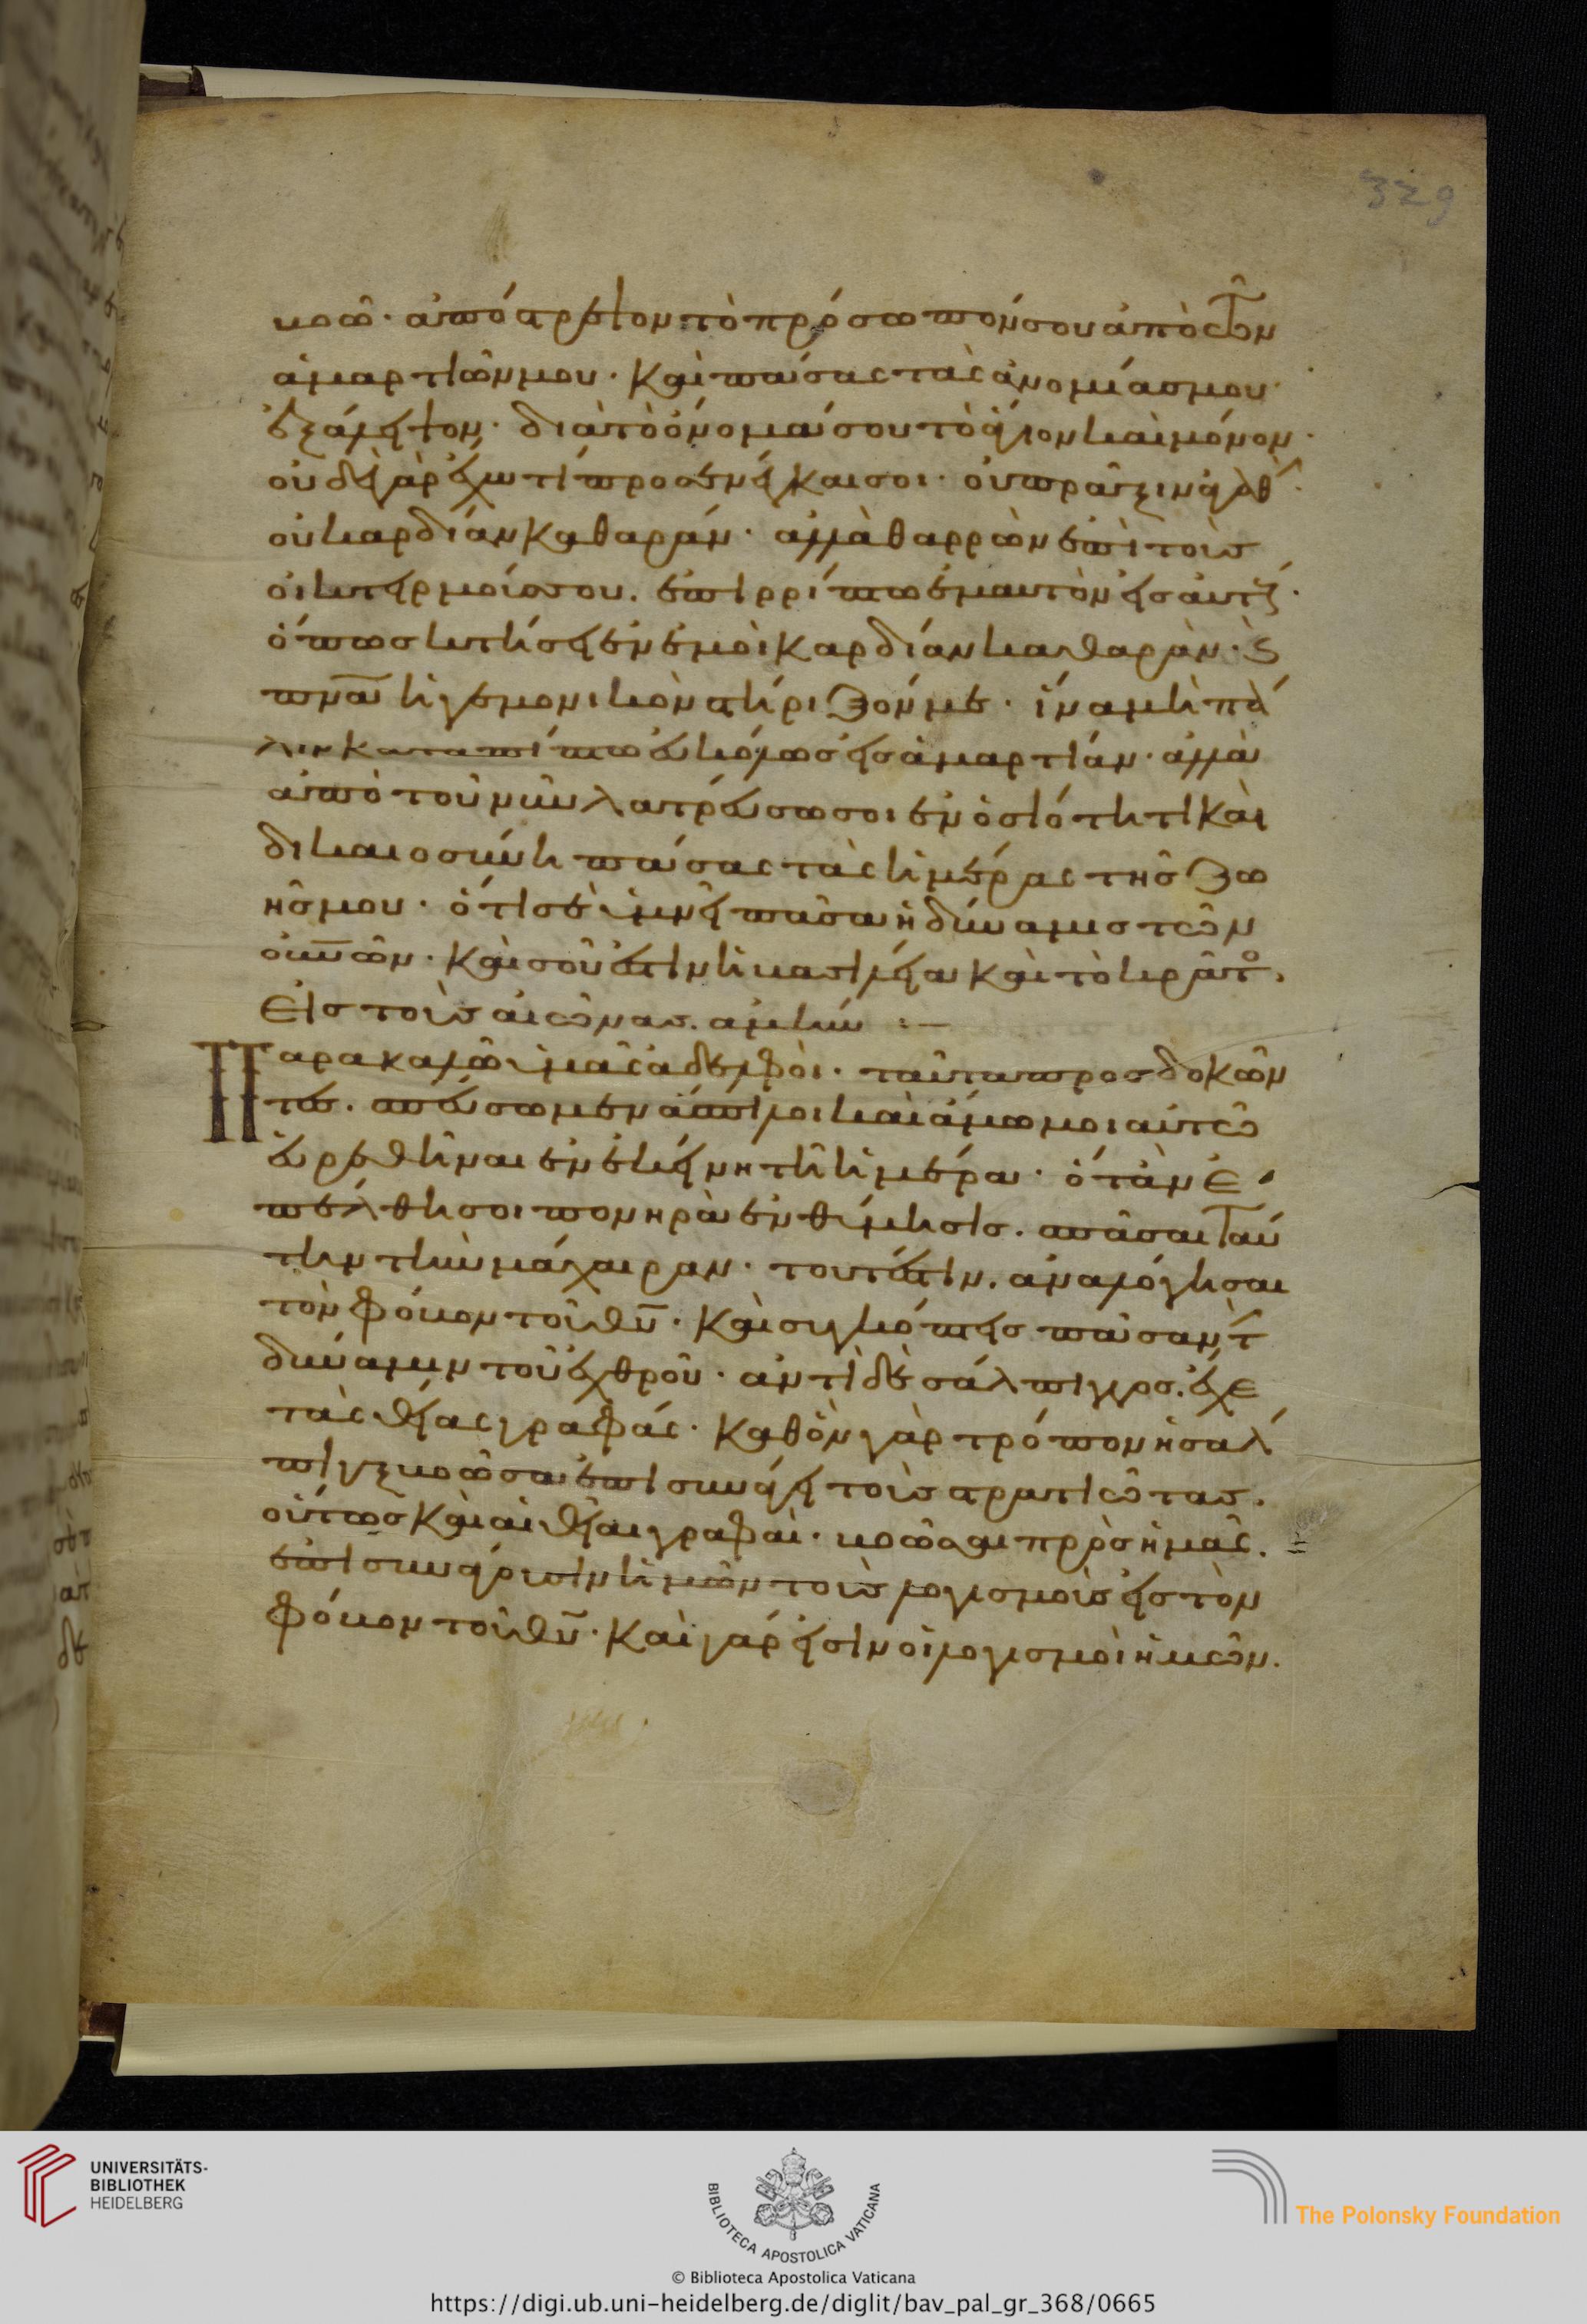 329
κρῶ· ἀπόστρεψον τὸ πρόσωπόν σου ἀπὸ τῶν
ἁμαρτιῶν μου· καὶ πάσας τὰς ἀνομίας μου
ἐξάλειψον· διὰ τὸ ὄνομά σου τὸ ἅγιον καὶ μόνον·
οὐδὲ γὰρ ἔχω τί προσενέγκαι σοι· οὐ πρᾶξιν ἀγαθ
οὐ καρδίαν καθαράν· ἀλλὰ θαρρῶν ἐπὶ τοὺς
οἰκτιρμούς σου. ἐπιρρίπτω ἐμαυτὸν εἰς αὐτούς·
ὅπως κτίσῃς ἐν ἐμοὶ καρδίαν καθαράν· καὶ
πνα ἡγεμονικὸν στηρίξον με· ἵνα μὴ πά
λιν καταπίπτω εὐκόλως εἰς ἁμαρτίαν· ἀλλὰ
ἀπὸ τοῦ νῦν λατρεύσω σοι ἐν ὁσιότητι καὶ
δικαιοσύνη πάσας τὰς ἡμέρας τῆς ζω
ῆς μου· ὅτι σὲ ὑμνεῖ πᾶσα ἡ δύναμις τῶν
οὐνῶν· καὶ σοῦ ἐστιν ἡ βασιλεία καὶ τὸ κράτο.
εἰς τοὺς αἰῶνας. ἀμήν :–
Παρακαλῶ ὑμᾶς ἀδελφοὶ· ταῦτα προσδοκῶν
τες. σπεύσωμεν ἄσπιλοι καὶ ἄμωμοι αὐτῶ
εὑρεθῆναι ἐν ἐκείνη τῆ ἡμέρα· ὅταν ἐ
πέλθη σοι πονηρὰ ἐνθύμησις. σπᾶσαι ταύ
την τὴν μάχαιραν· τουτέστιν. ἀναλόγησαι
τὸν φόβον τοῦ θυ· καὶ συγκόπτεις πᾶσαν τ
δύναμιν τοῦ ἐχθροῦ· ἀντὶ δὲ σάλπιγγος. ἔχε
τὰς θείας γραφάς· καθὸν γὰρ τρόπον ἡ σάλ
πιγξ βοῶσα ἐπισυνάγει τοὺς στρατιώτας.
οὕτως καὶ αἱ θεῖαι γραφαὶ· βοῶσαι πρὸς ἡμᾶς.
ἐπισυνάγουσιν ἡμῶν τοὺς λογισμοὺς εἰς τὸν
φόβον τοῦ θυ· καὶ γάρ εἰσιν οἱ λογισμοὶ ἡμῶν.
UNIVERSITÄTS-
BIBLIOTHEK
HEIDELBERG
BIBLIOTECA APOSTOLICA VATICANA
The Polonsky Foundation
© Biblioteca Apostolica Vaticana
https://digi.ub.uni-heidelberg.de/diglit/bav_pal_gr_368/0665